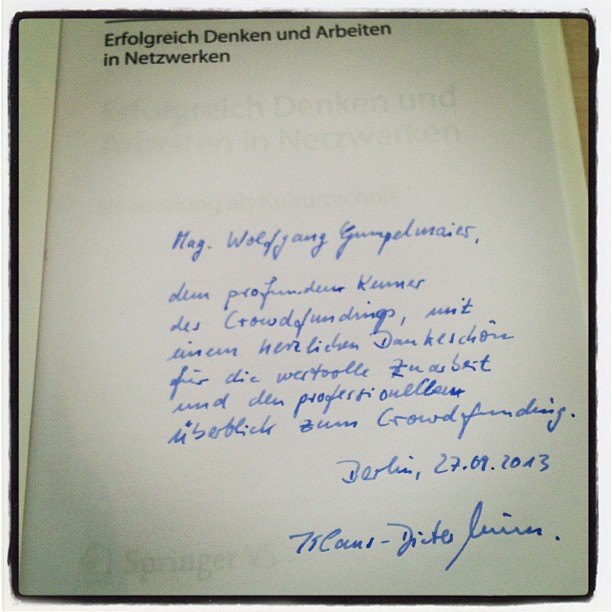 Erfolgreich Denken und Arbeiten
in Netzwerken
Erfolgreich Denken und
Arbeiten in Netzwerken
Networking als Kulturtechnik
Mag. Wolfgang Gumpelmaier,
dem profunden Kenner
des Crowdfundings, mit
einem herzlichen Dankeschön
für die wertvolle Zuarbeit
und den professionellen
Überblick zum Crowdfunding.
Berlin, 27.09.2013
Klaus-Dieter
Springer VS